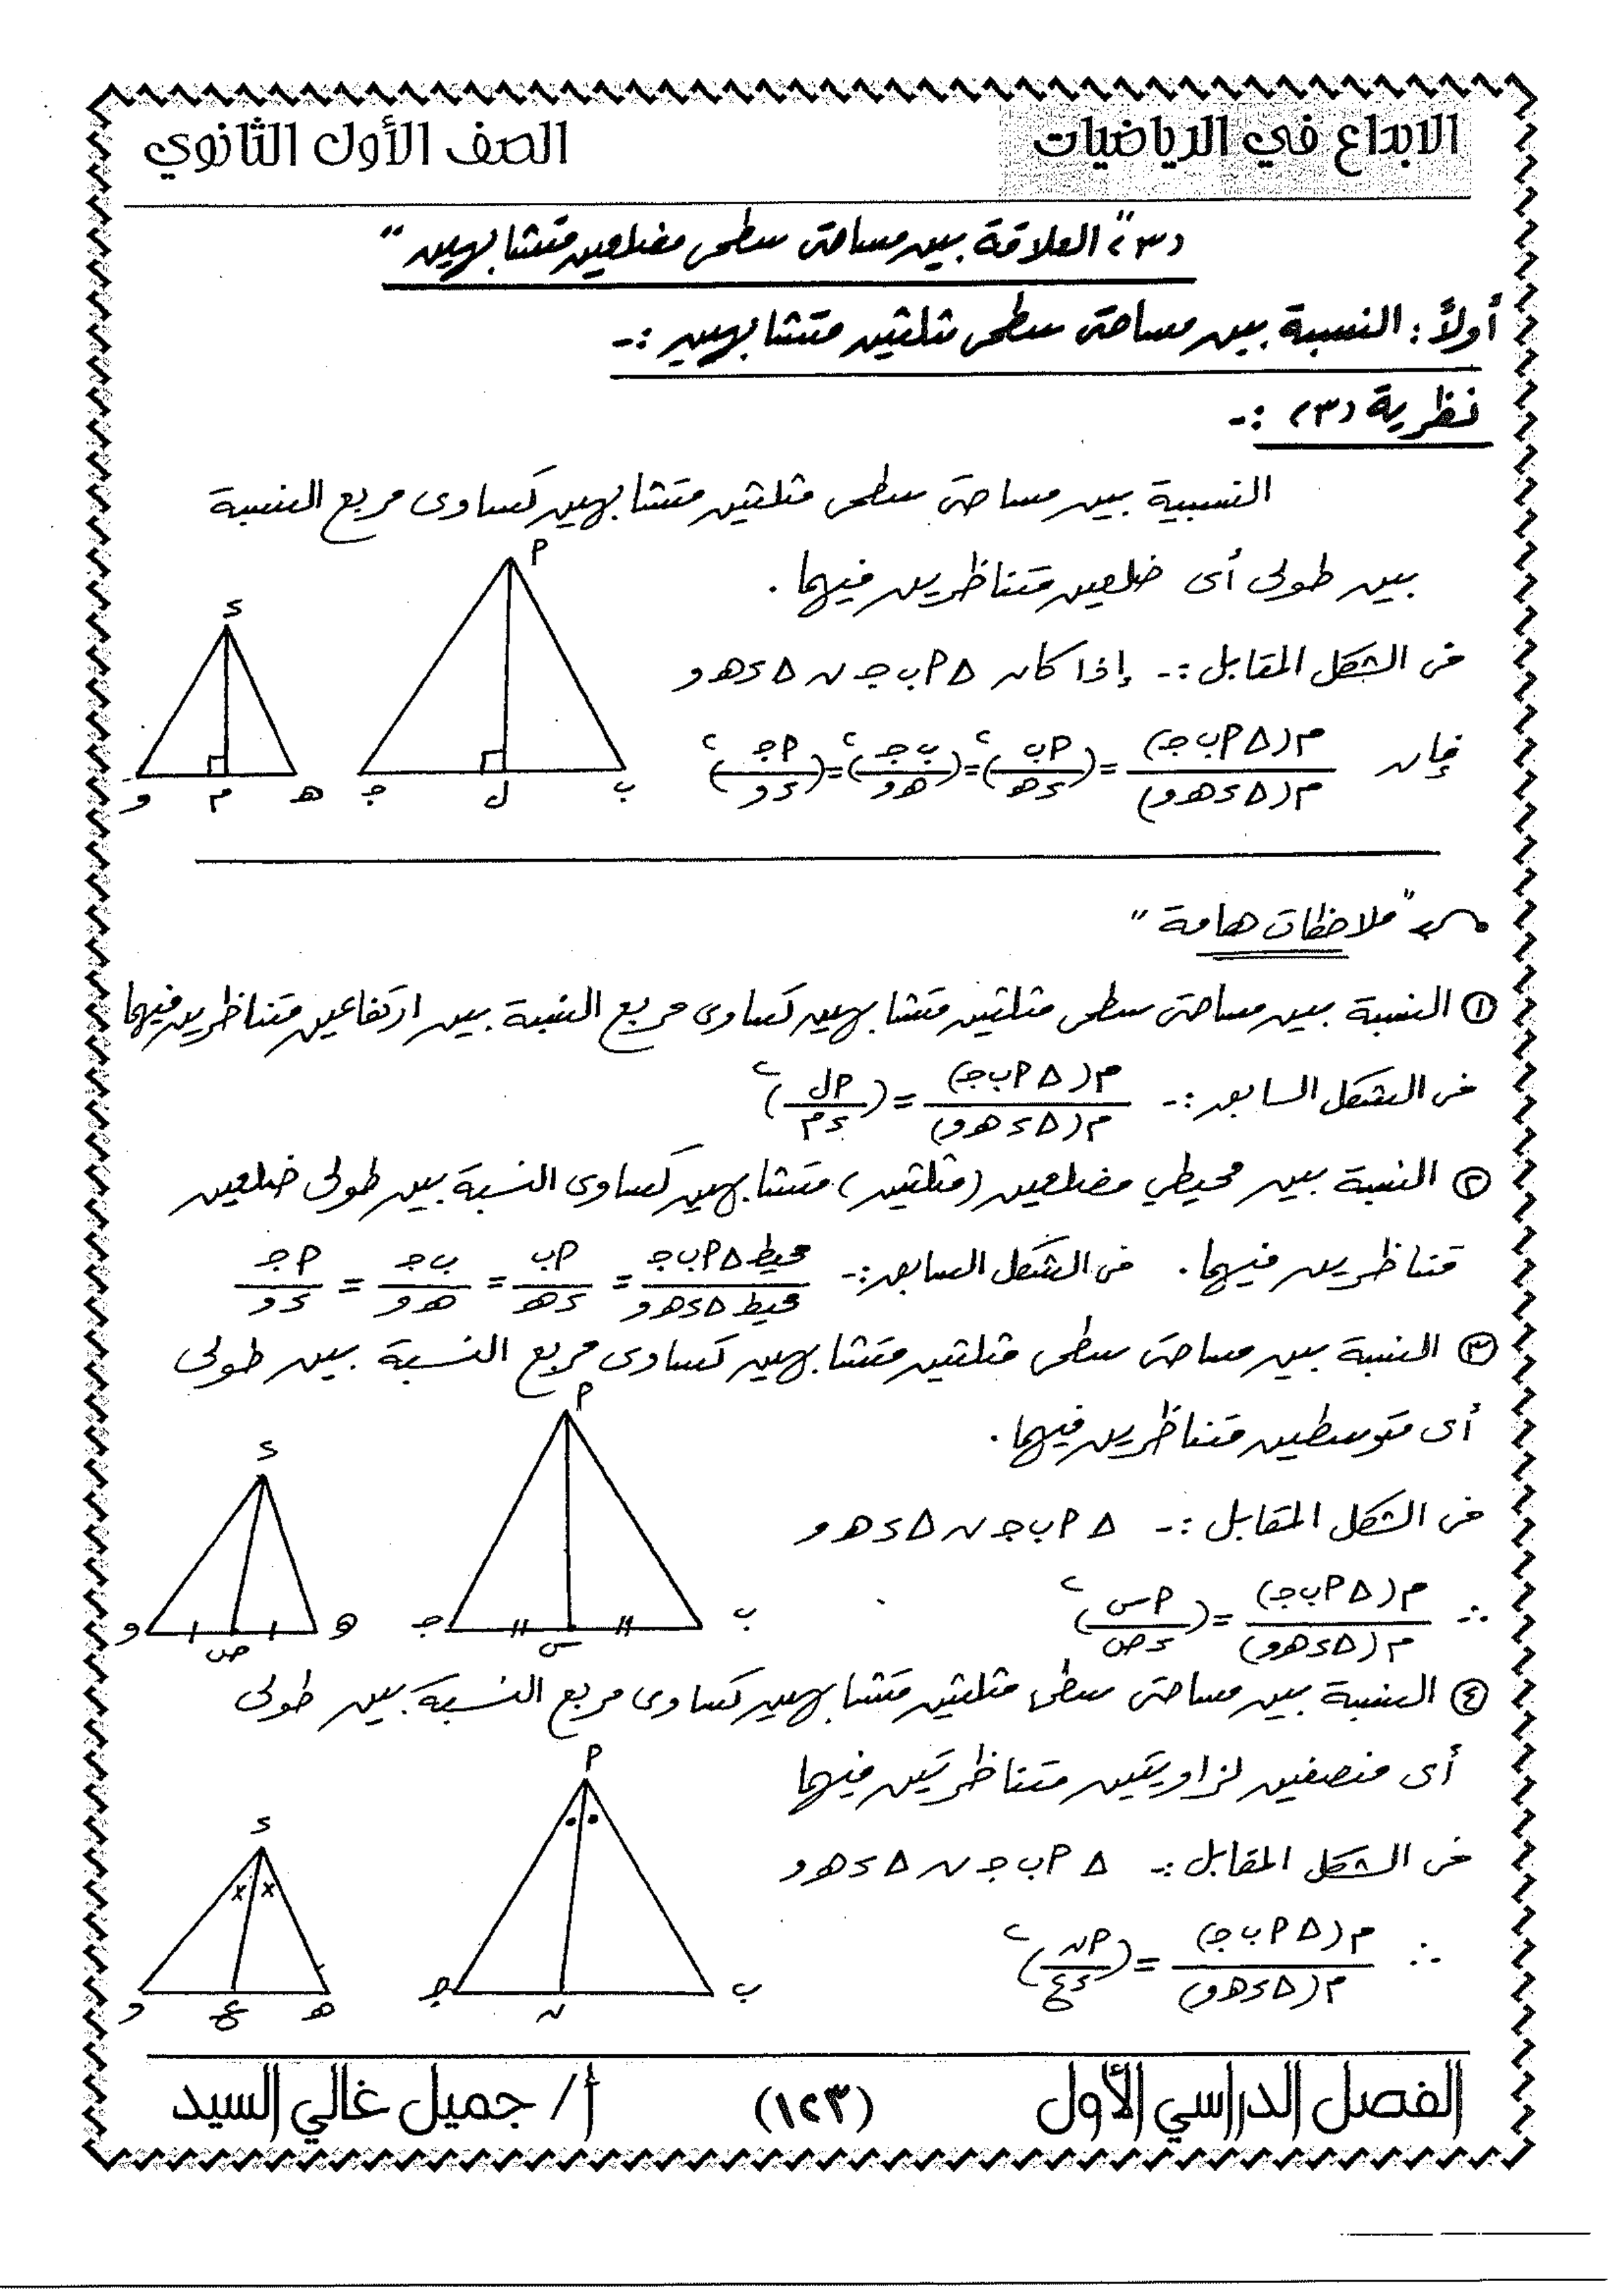 الابداع في الرياضيات
الصف الأول الثانوي
(٣) "العلاقة بين مساحتى سطحى مضلعين متشابهين"
أولاً: النسبة بين مساحتى سطحى مثلثين متشابهين :-
نظرية (٣) :-
النسبية بين مساحتى سطحى مثلثين متشابهين تساوى مربع النسبة
بين طولى أى ضلعين متناظرين فيهما.
فى الشكل المقابل :- إذا كان △ م‍ ب ج‍ ~ △ ء ه‍ و
فإن م(△ ‍م ب ج‍)/م(△ ء ه‍ و) = (‍م ب/ء ه‍)² = (ب ج‍/ه‍ و)² = (‍م ج‍/ء و)²
م‍ ب ل ج‍
ء ه‍ م و
"ملاحظات هامة"
① النسبة بين مساحتى سطحى مثلثين متشابهين تساوى مربع النسبة بين ارتفاعين متناظرين فيهما
فى الشكل السابق :- م(△ ‍م ب ج‍)/م(△ ء ه‍ و) = (‍م ل/ء م)²
② النسبة بين محيطي مضلعين (مثلثين) متشابهين تساوى النسبة بين طولى ضلعين
متناظرين فيهما. فى الشكل السابق :- محيط △ ‍م ب ج‍/محيط △ ء ه‍ و = ‍م ب/ء ه‍ = ب ج‍/ه‍ و = ‍م ج‍/ء و
③ النسبة بين مساحتى سطحى مثلثين متشابهين تساوى مربع النسبة بين طولى
أى متوسطين متناظرين فيهما.
فى الشكل المقابل :- △ ‍م ب ج‍ ~ △ ء ه‍ و
∴ م(△ ‍م ب ج‍)/م(△ ء ه‍ و) = (‍م س/ء ص)²
م‍ ب س ج‍
ء ه‍ ص و
④ النسبة بين مساحتى سطحى مثلثين متشابهين تساوى مربع النسبة بين طولى
أى منصفين لزاويتين متناظرتين فيهما
فى الشكل المقابل :- △ ‍م ب ج‍ ~ △ ء ه‍ و
∴ م(△ ‍م ب ج‍)/م(△ ء ه‍ و) = (‍م ن/ء ع)²
م‍ ب ن ج‍
ء ه‍ ع و
الفصل الدراسي الأول
(١٢٣)
أ/ جميل غالي السيد